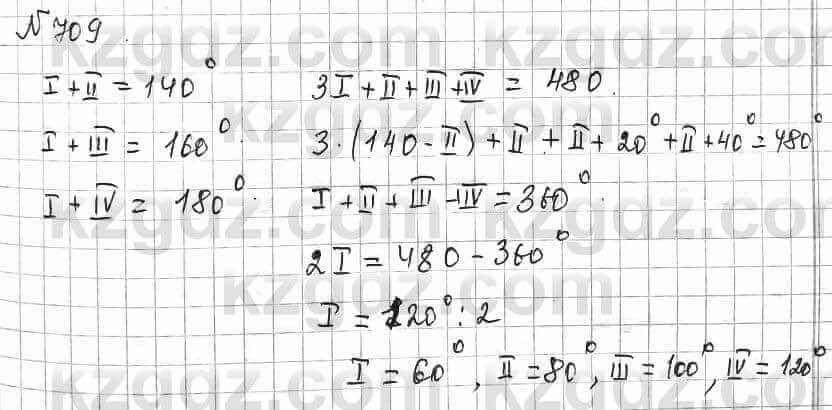 № 709.
I + II = 140°
I + III = 160°.
I + IV = 180°.
3I + II + III + IV = 480.
3·(140 - II) + II + II + 20° + II + 40° = 480°
I + II + III - IV = 360°.
2I = 480 - 360°
I = 120° : 2
I = 60°, II = 80°, III = 100°, IV = 120°
kzgdz.com